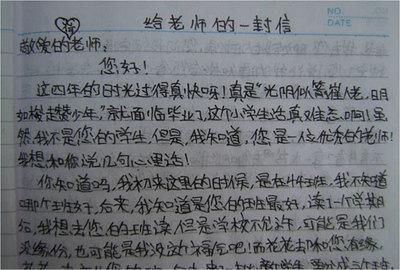 给老师的一封信
NO.
DATE
敬爱的老师:
您好!
这四年的时光过得真快呀!真是“光阴似箭催人老,日月
如梭趱少年。”就面临毕业了,这个小学生活真难忘啊!虽
然,我不是您的学生,但是,我知道,您是一位优秀的老师!
我想和你说几句心里话!
你知道吗,我初来这里的时候,是在4年班,我不知道
哪个班好,后来,我知道是您的班最好,读了一个学期
后,我想去您的班读,但是学校不允许,可能是我们
没缘份,也可能是我没这个福气吧!而